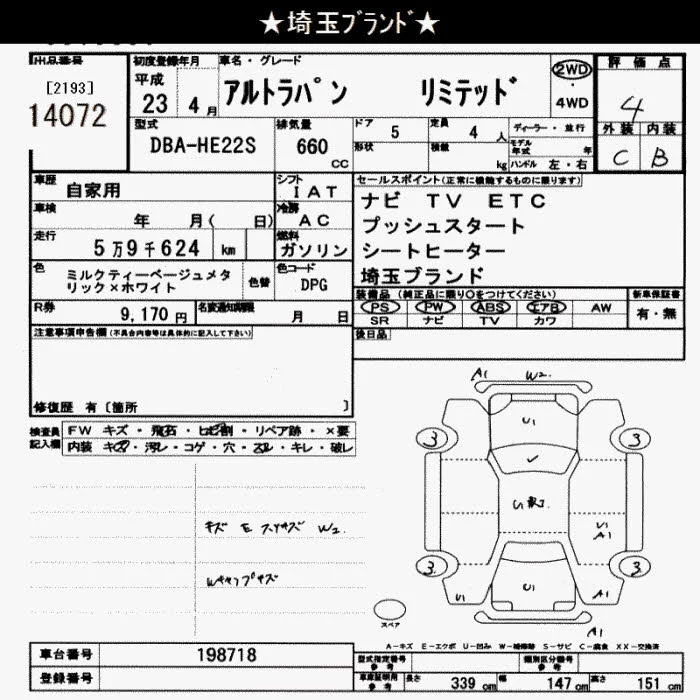 ★埼玉ﾌﾞﾗﾝﾄﾞ★
出品番号
[2193]
14072
初度登録年月
平成
23 4 月
車名・グレード
アルトラパン リミテッド
2WD
・
4WD
評価点
4
外装 内装
C B
型式
DBA-HE22S
排気量
660
CC
ドア 5
定員 4 人
ディーラー・並行
形状
積載 kg
モデル年式 年
ハンドル 左・右
車歴 自家用
シフト IAT
車検 年 月( 日)
冷房 AC
走行 5万9千624 km
燃料 ガソリン
色 ミルクティーベージュメタリック×ホワイト
色替
色コード DPG
セールスポイント(正常に機能するものに限ります)
ナビ TV ETC
プッシュスタート
シートヒーター
埼玉ブランド
R券 9,170 円
名変通知期限 月 日
装備品 (純正品に限り○をつけてください)
PS PW ABS エアB AW
SR ナビ TV カワ
新車保証書
有・無
後日品
注意事項申告欄(不具合内容等は具体的に記入して下さい)
修復歴 有〔箇所 〕
検査員記入欄
FW キズ・飛石・ヒビ割・リペア跡・×要
内装 キズ・汚レ・コゲ・穴・スレ・キレ・破レ
A1 W2
U1
3 3
U1
A1
3 3
U1 U1 A1
A1
スペア
A-キズ E-エクボ U-凹み W-補修跡 S-サビ C-腐食 XX-交換済
車台番号 198718
登録番号
型式指定番号 参考
類別区分番号 参考
車庫証明用 参考
長さ 339 cm 幅 147 cm 高さ 151 cm